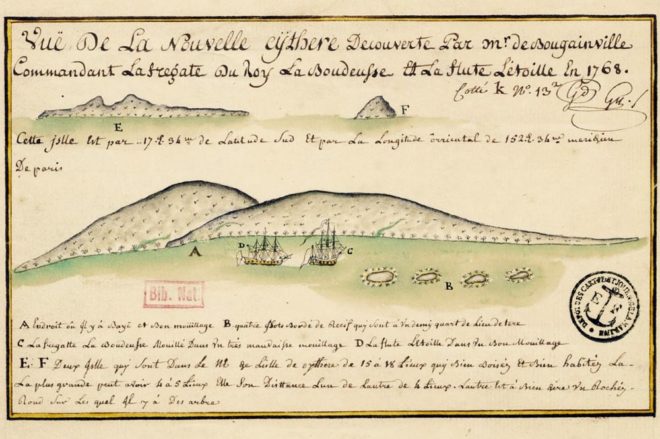 Vuë De La Nouvelle cÿthere Decouverte Par mr. de Bougainville
Commandant La fregate Du Roy La Boudeusse Et La flute Letoille En 1768.
Cotté k No. 13
E
F
Cette jslle Est par 17 34 de Latitude Sud Et par La Longitude orriental de 152 34 meridien
De paris
D
C
A
B
Bib. Nat.
A Endroit où Il y à Baye et Bon mouillage B quatre jslots Bordé de Recif qui sont à Un demy quart de Lieu de tere
C La fregatte La Boudeusse Mouillé Dans Un trés mauvaisse mouillage D La flute Létoille Dans Un Bon Mouillage
E: F Deux jslle qui sont Dans Le de Lislle de cythere de 15 à 18 Lieux quy Sien Boisés et Bien habitéz La
La plus grande peut avoir 4 à 5 Lieux Son Disttance Lun de Lautre de 4 Lieux. Lautre Est à Bien dire Un Rochéz
Rond Sur Les quel Il y à Des arbre